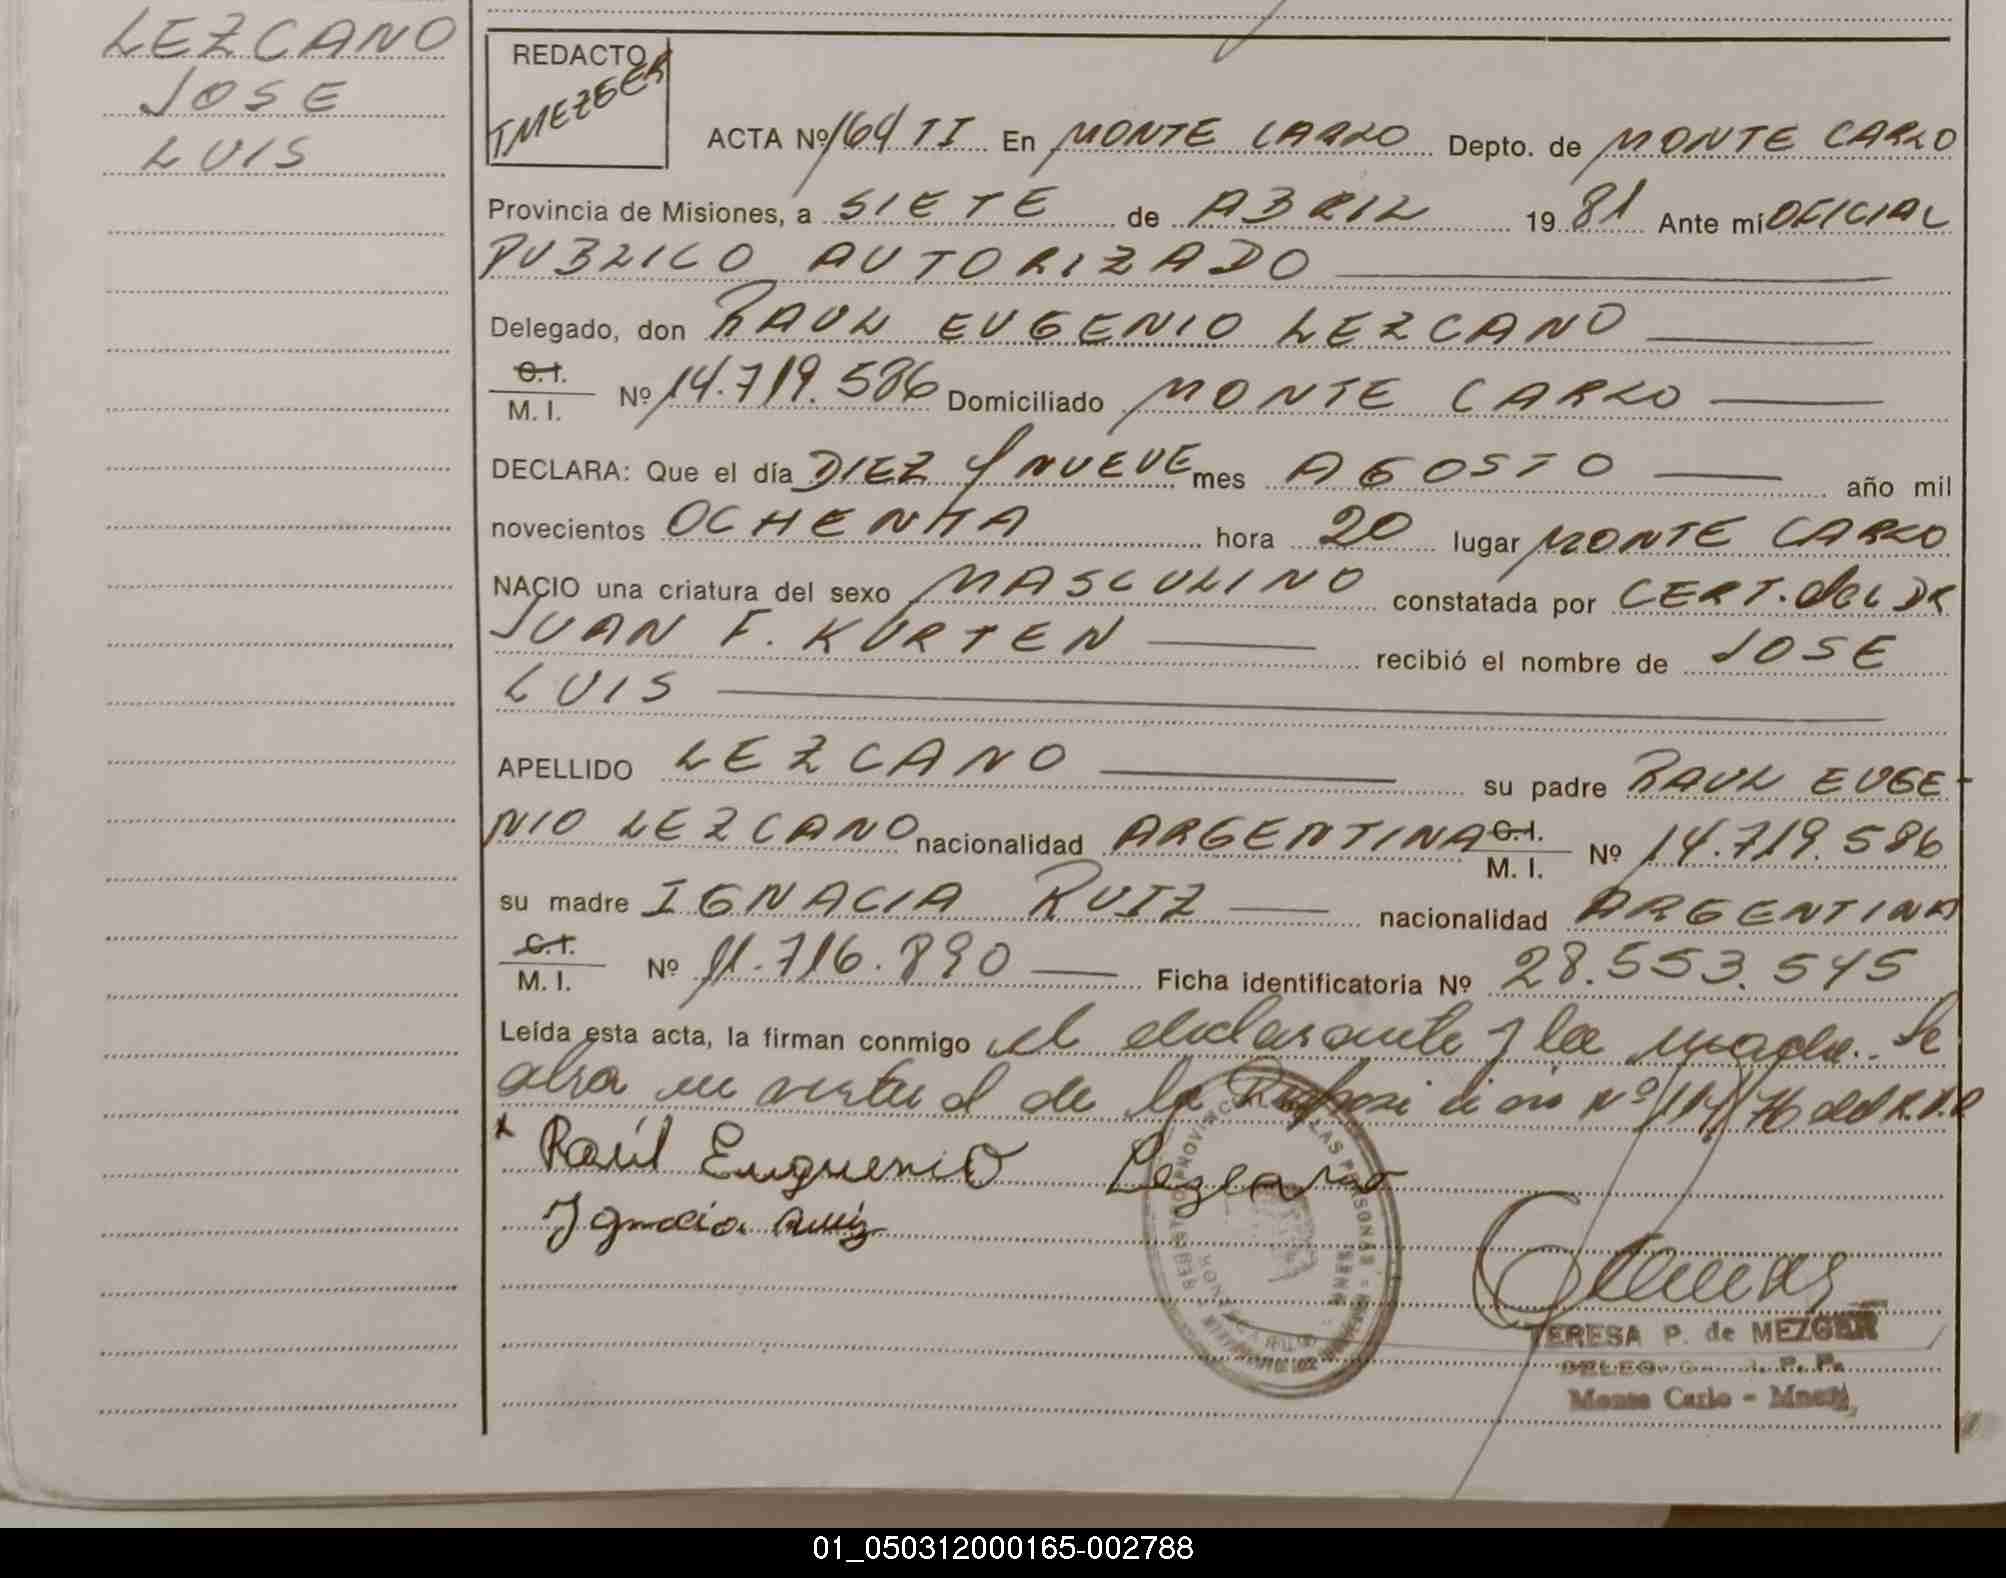 LEZCANO
JOSE
LUIS
REDACTO
TMEZGER
ACTA Nº 164 TI En MONTE CARLO Depto. de MONTE CARLO
Provincia de Misiones, a SIETE de ABRIL 1981 Ante mí OFICIAL
PUBLICO AUTORIZADO
Delegado, don RAUL EUGENIO LEZCANO
C.I.
M. I. Nº 14.719.586 Domiciliado MONTE CARLO
DECLARA: Que el día DIEZ Y NUEVE mes AGOSTO año mil
novecientos OCHENTA hora 20 lugar MONTE CARLO
NACIO una criatura del sexo MASCULINO constatada por CERT. del DR
JUAN F. KURTEN recibió el nombre de JOSE
LUIS
APELLIDO LEZCANO su padre RAUL EUGE-
NIO LEZCANO nacionalidad ARGENTINA C.I. M. I. Nº 14.719.586
su madre IGNACIA RUIZ nacionalidad ARGENTINA
C.I.
M. I. Nº 11.716.890 Ficha identificatoria Nº 28.553.545
Leída esta acta, la firman conmigo el declarante y la madre. Se
en virtud de la Disposición Nº 114/76 del R.P.P
x Raúl Euguenio Lezcano
Ignacia Ruiz
REGISTRO PROVINCIAL DE LAS PERSONAS
TERESA P. de MEZGER
Monte Carlo - Mnes
01_050312000165-002788